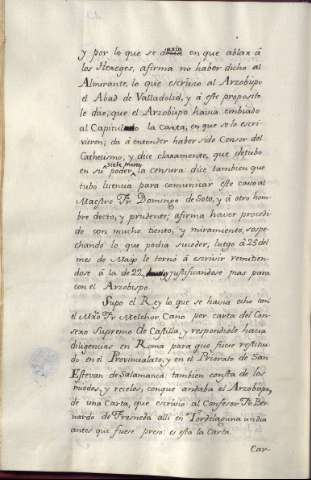 y por lo que se dexia en que ablax á
los Hexeges, afirma no haber dicho al
Almirante lo que escrivio al Arzobispo
el Abad de Valladolid, y á este proposito
le dice; que el Arzobispo havia embiado
al Capitulo la carta, en que se lo escri-
vieron; da á entender haber sido Censor del
Cathecismo, y dice claxamente, que detubo
en su poder siete meses la censura dice tambien que
tubo licencia para comunicar este caso al
Maestro Fr. Domingo de Soto, y á otro hom-
bre docto, y prudente; afirma haver procedi-
do con mucho tiento, y miramiento, sospe-
chando lo que podia suceder, luego á 25 del
mes de Mayo le tornó á escrivir remitien-
dose á la de 22, y justificandose mas para
con el Arzobispo.
Supo el Rey lo que se havia echo con
el Mro. Fr. Melchor Cano por carta del Con-
sexo Supremo de Castilla, y respondiole hacia
diligencias en Roma para que fuese restitui-
do en el Provincialato, y en el Priorato de San
Estevan de Salamanca: tambien consta de los
miedos, y recelos, conque andaba el Arzobispo,
de una Carta, que escrivio al Confesor Fr. Ber-
nardo de Fresneda alli en Tordelaguna un dia
antes que fuese preso: es esta la Carta.
Car-